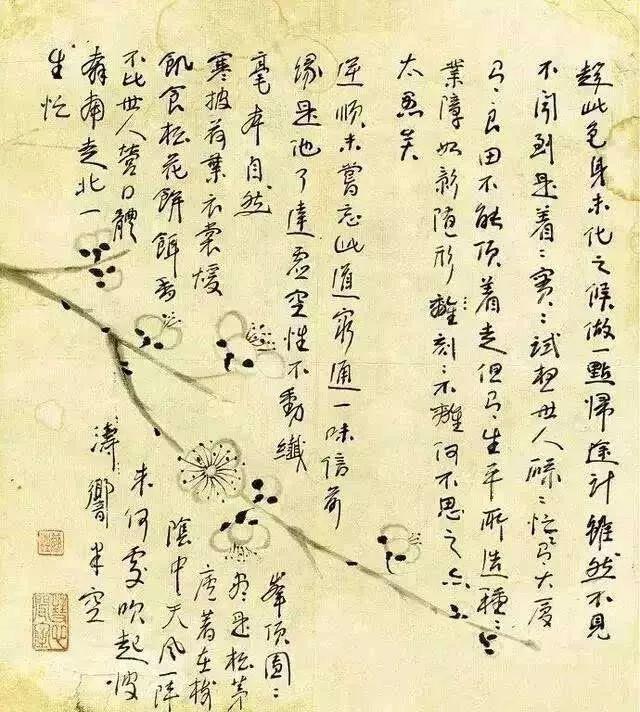 趁此色身未化之候做一點歸途計雖然不見
不聞到是着〻實〻試想世人碌〻忙〻大厦
良田不能頂着走但生平所造種〻
業障如影隨形刻〻不離何不思之亦
太愚矣
逆順未嘗忘此道窮通一味信前
緣是他了達虛空性不動纖
毫本自然
寒披荷葉衣裳煖
飢食松花餅餌香
不比世人營口體
奔南走北一
生忙
峯頂團〻
盡是松茅
廬著在樹
陰中天風一陣
來何處吹起波
濤響半空